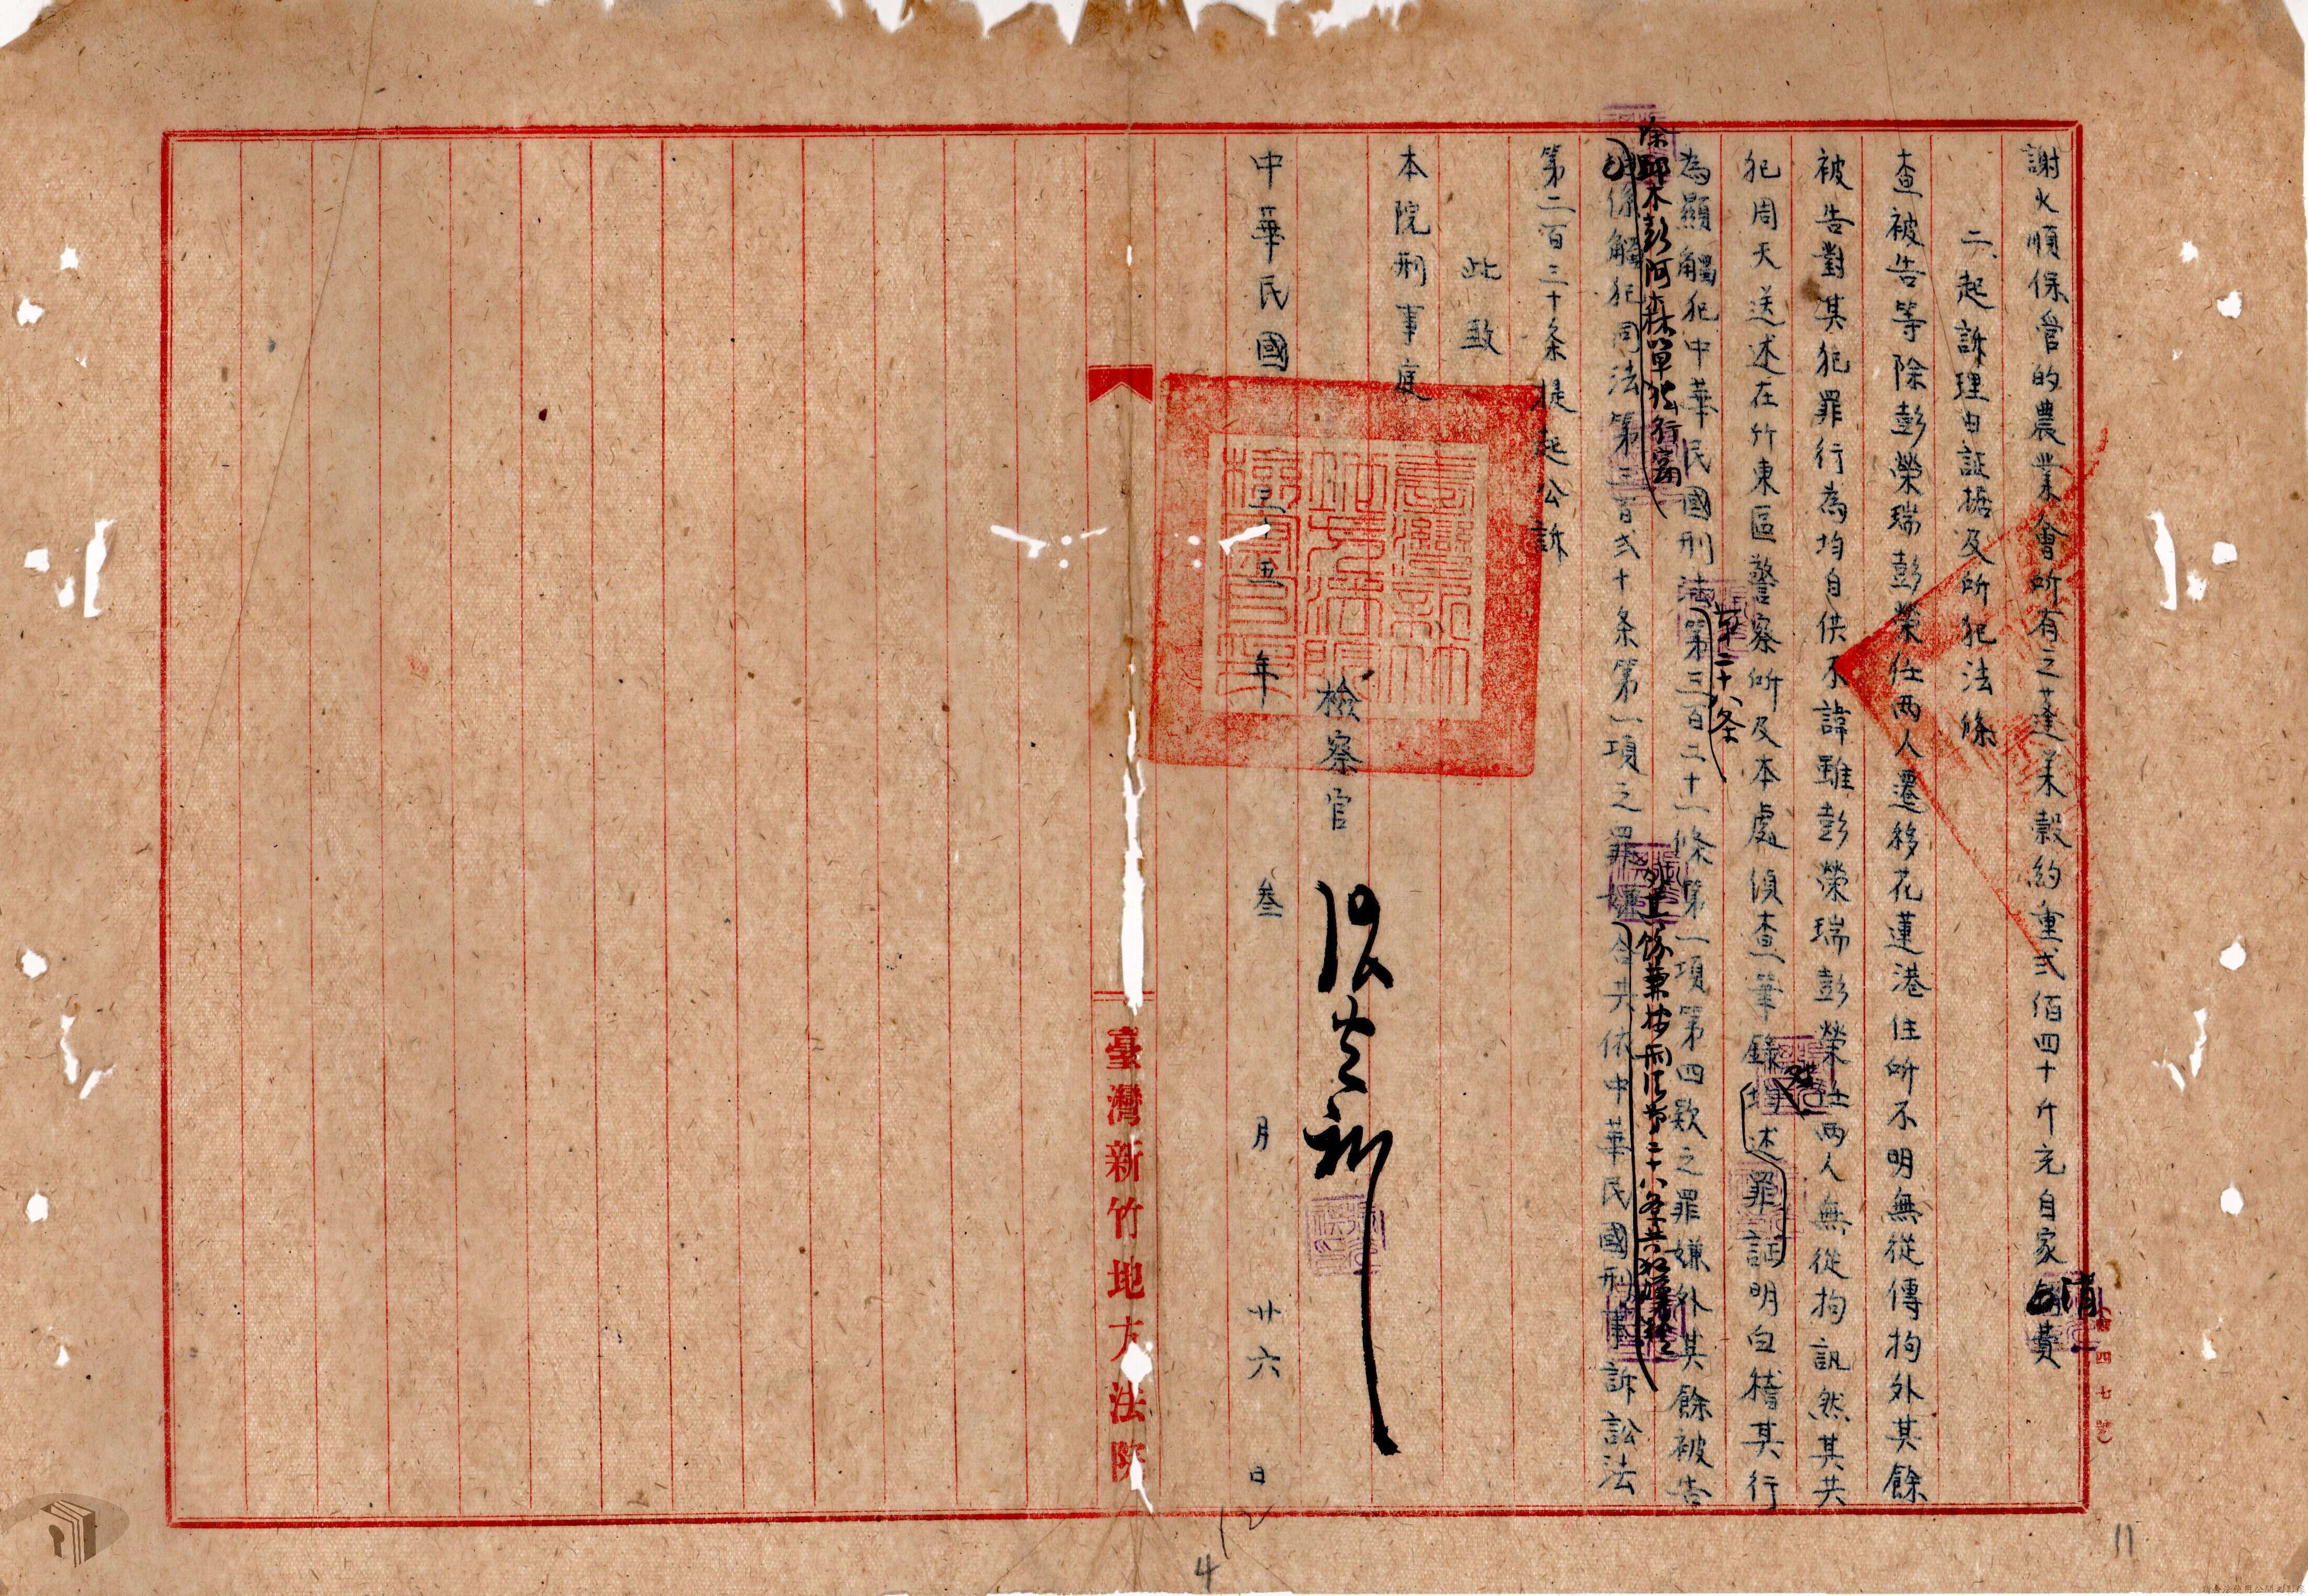 謝火順保管的農業會所有之蓬萊穀約重弍佰四十斤充自家消費
二、起訴理由証據及所犯法條
查被告等除彭榮瑞彭榮任兩人遷移花蓮港住所不明無從傳拘外其餘
被告對其犯罪行為均自供不諱雖彭榮瑞彭榮任兩人無從拘訊然其共
犯周天送述在竹東區警察所及本處偵查筆錄均述罪証明白稽其行
第二十八条
為顯觸犯中華民國刑法第三百二十一條第一項第四款之罪嫌外其餘被告
除邱木彭阿森單獨行竊
係觸犯同法第三百弍十条第一項之罪嫌合共依中華民國刑事訴訟法
第二百三十条提起公訴
此致
本院刑事庭
檢察官
中華民國三十五年叁月廿六日
臺灣新竹地方法院
臺灣新竹地方法院檢察官印
四七號
4
11